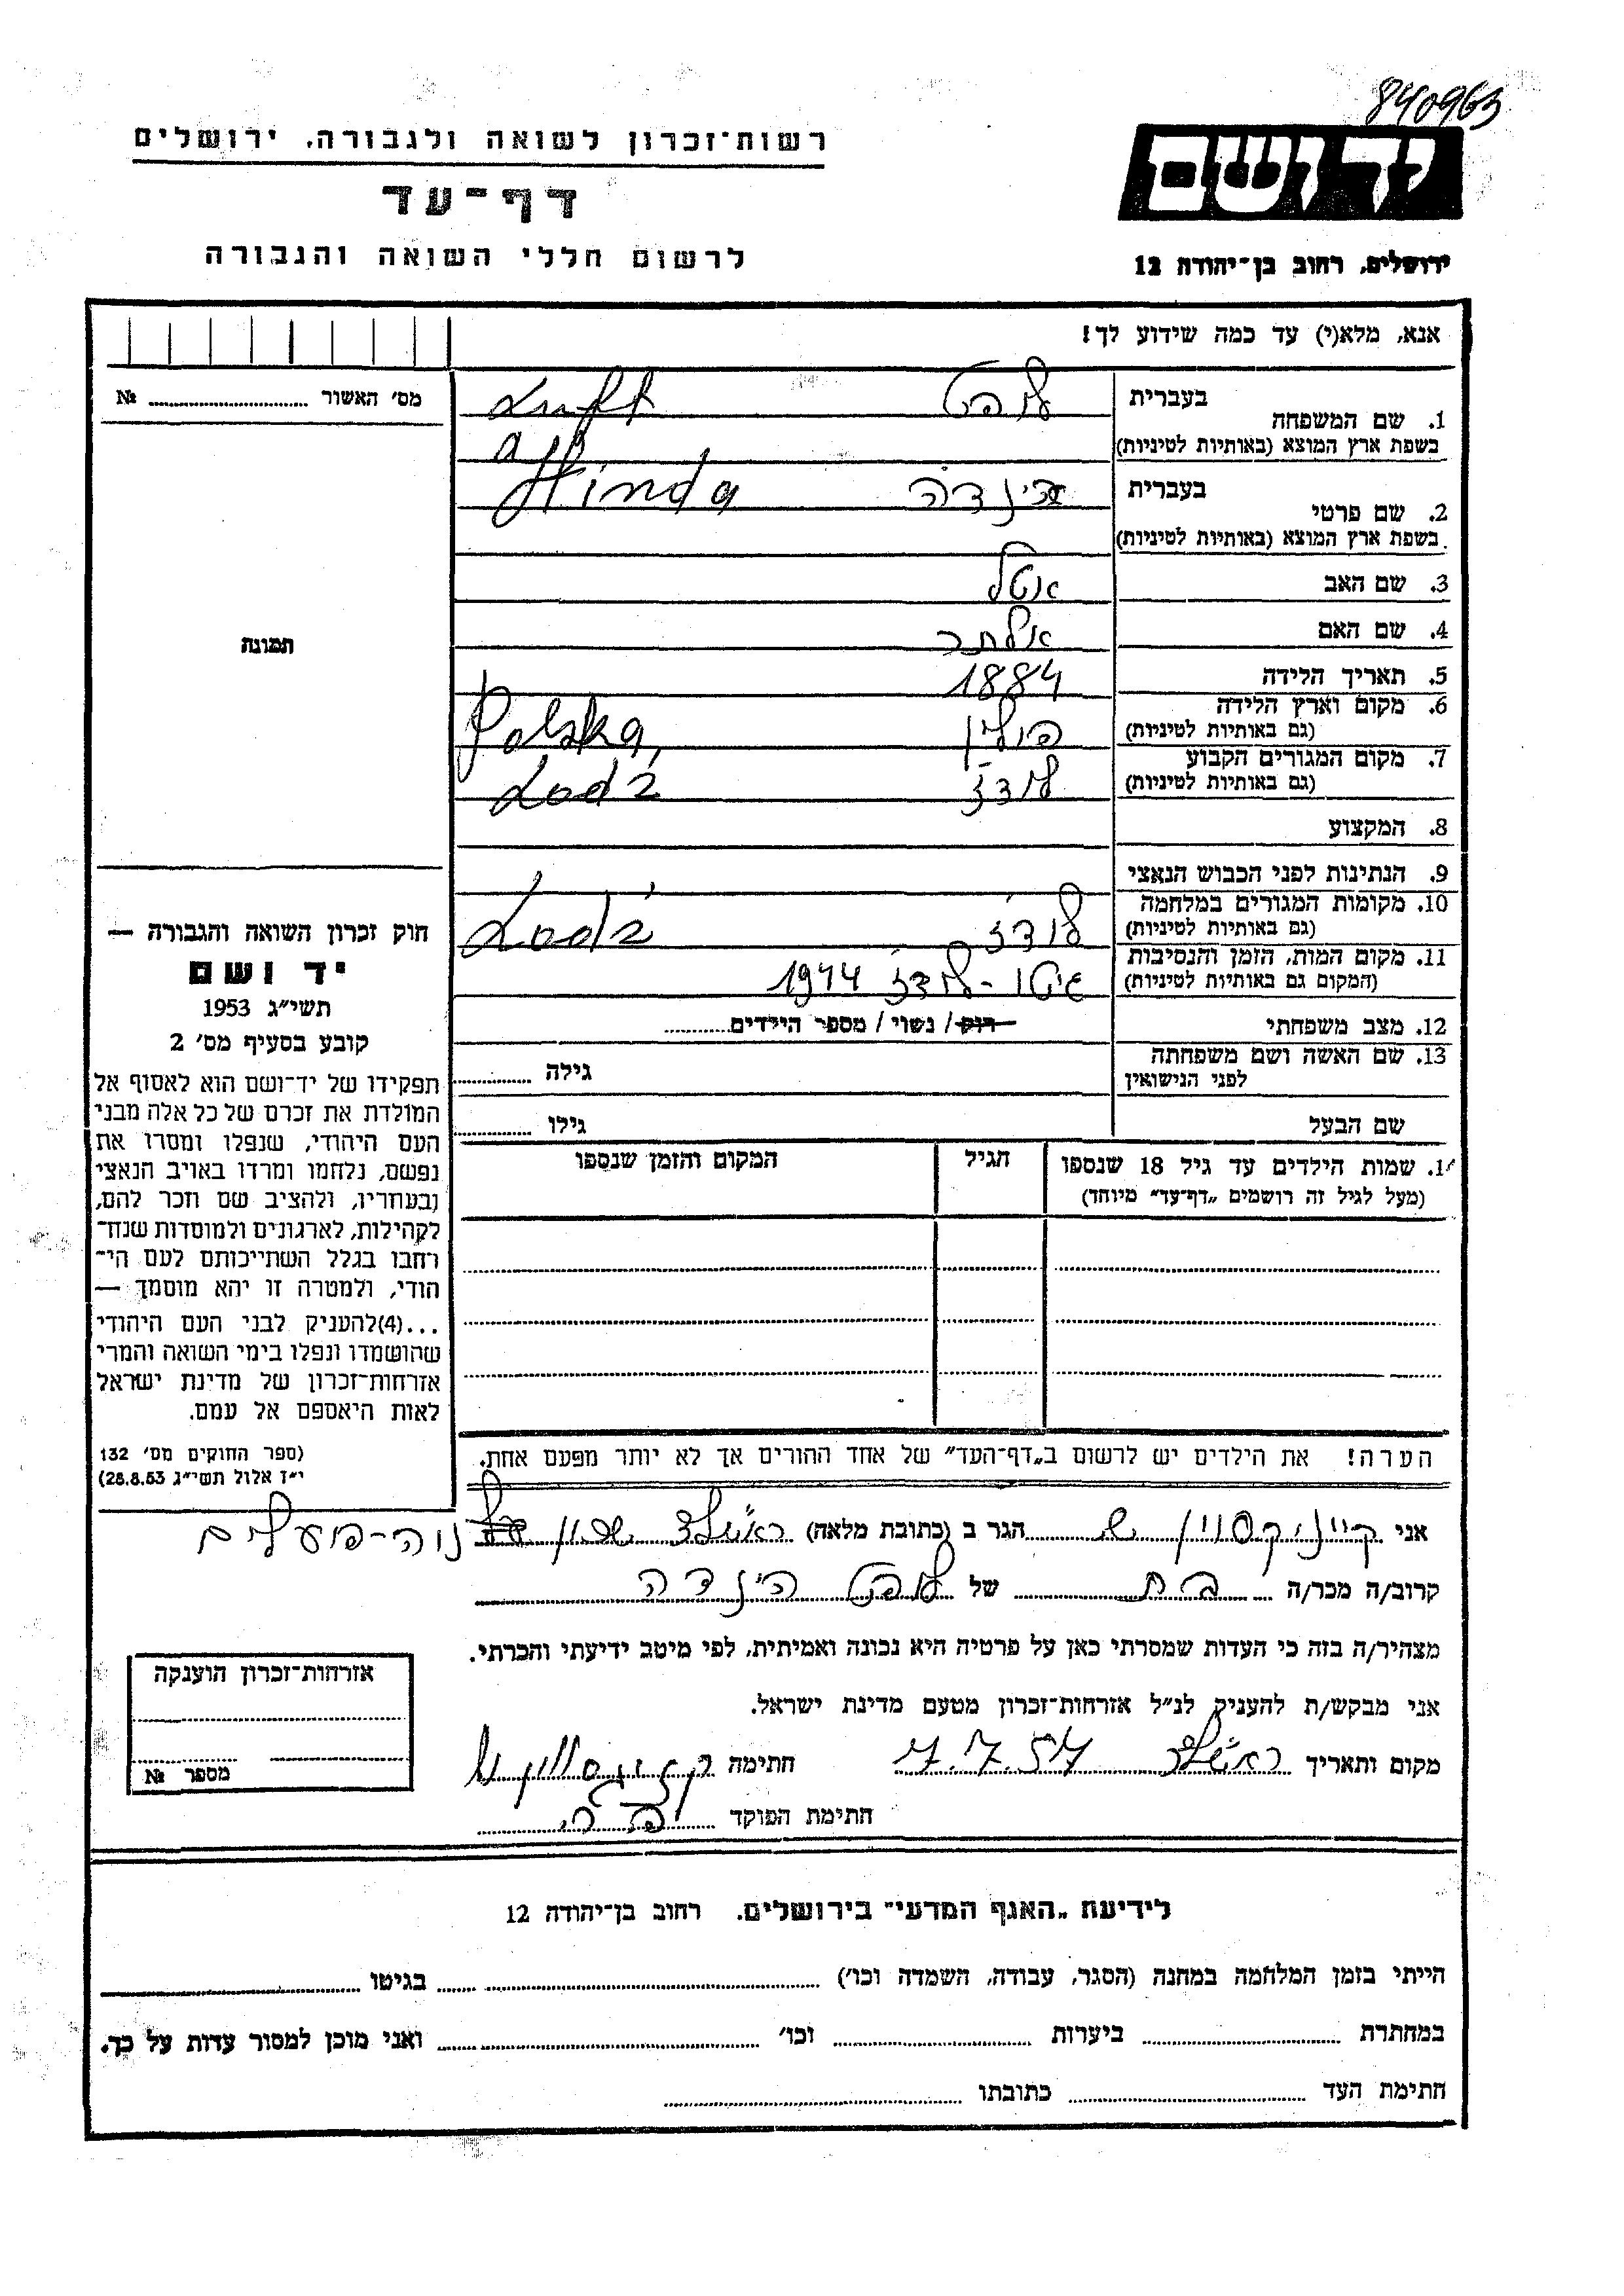 840963
רשות־זכרון לשואה ולגבורה, ירושלים
דף־עד
לרשום חללי השואה והגבורה
יד ושם
ירושלים, רחוב בן־יהודה 12
אנא, מלא(י) עד כמה שידוע לך!
מס' האשור № 
תמונה
1. שם המשפחה בעברית לופט Luft
בשפת ארץ המוצא (באותיות לטיניות)
2. שם פרטי בעברית הינדה Hinda
בשפת ארץ המוצא (באותיות לטיניות)
3. שם האב
4. שם האם
5. תאריך הלידה 1884
6. מקום וארץ הלידה (גם באותיות לטיניות) פולין Polska,
7. מקום המגורים הקבוע (גם באותיות לטיניות) לודז' Lodź
8. המקצוע
9. הנתינות לפני הכבוש הנאצי
10. מקומות המגורים במלחמה (גם באותיות לטיניות) לודז' Lodź
11. מקום המות, הזמן והנסיבות (המקום גם באותיות לטיניות) גיטו - לודז' 1944
12. מצב משפחתי רווק / נשוי / מספר הילדים
13. שם האשה ושם משפחתה לפני הנישואין גילה
שם הבעל גילו
שמות הילדים עד גיל 18 שנספו (מעל לגיל זה רושמים „דף־עד" מיוחד)
הגיל
המקום והזמן שנספו
הערה! את הילדים יש לרשום ב„דף־העד" של אחד ההורים אך לא יותר מפעם אחת.
חוק זכרון השואה והגבורה —
יד ושם
תשי"ג 1953
קובע בסעיף מס' 2
תפקידו של יד־ושם הוא לאסוף אל
המולדת את זכרם של כל אלה מבני
העם היהודי, שנפלו ומסרו את
נפשם, נלחמו ומרדו באויב הנאצי
ובעוזריו, ולהציב שם וזכר להם,
לקהילות, לארגונים ולמוסדות שנח־
רבו בגלל השתייכותם לעם הי־
הודי, ולמטרה זו יהא מוסמך —
...(4)להעניק לבני העם היהודי
שהושמדו ונפלו בימי השואה והמרי
אזרחות־זכרון של מדינת ישראל
לאות היאספם אל עמם.
(ספר החוקים מס' 132
י"ז אלול תשי"ג 28.8.53)
אני הגר ב (כתובת מלאה) ראשל"צ נוה-פועלים
קרוב/ה מכר/ה בת של לופט הינדה
מצהיר/ה בזה כי העדות שמסרתי כאן על פרטיה היא נכונה ואמיתית, לפי מיטב ידיעתי והכרתי.
אני מבקש/ת להעניק לנ"ל אזרחות־זכרון מטעם מדינת ישראל.
מקום ותאריך ראשל"צ 7.7.57 חתימה
חתימת הפוקד
אזרחות־זכרון הוענקה
מספר №
לידיעת „האגף המדעי" בירושלים, רחוב בן־יהודה 12
הייתי בזמן המלחמה במחנה (הסגר, עבודה, השמדה וכו') בגיטו
במחתרת ביערות וכו' ואני מוכן למסור עדות על כך.
חתימת העד כתובתו